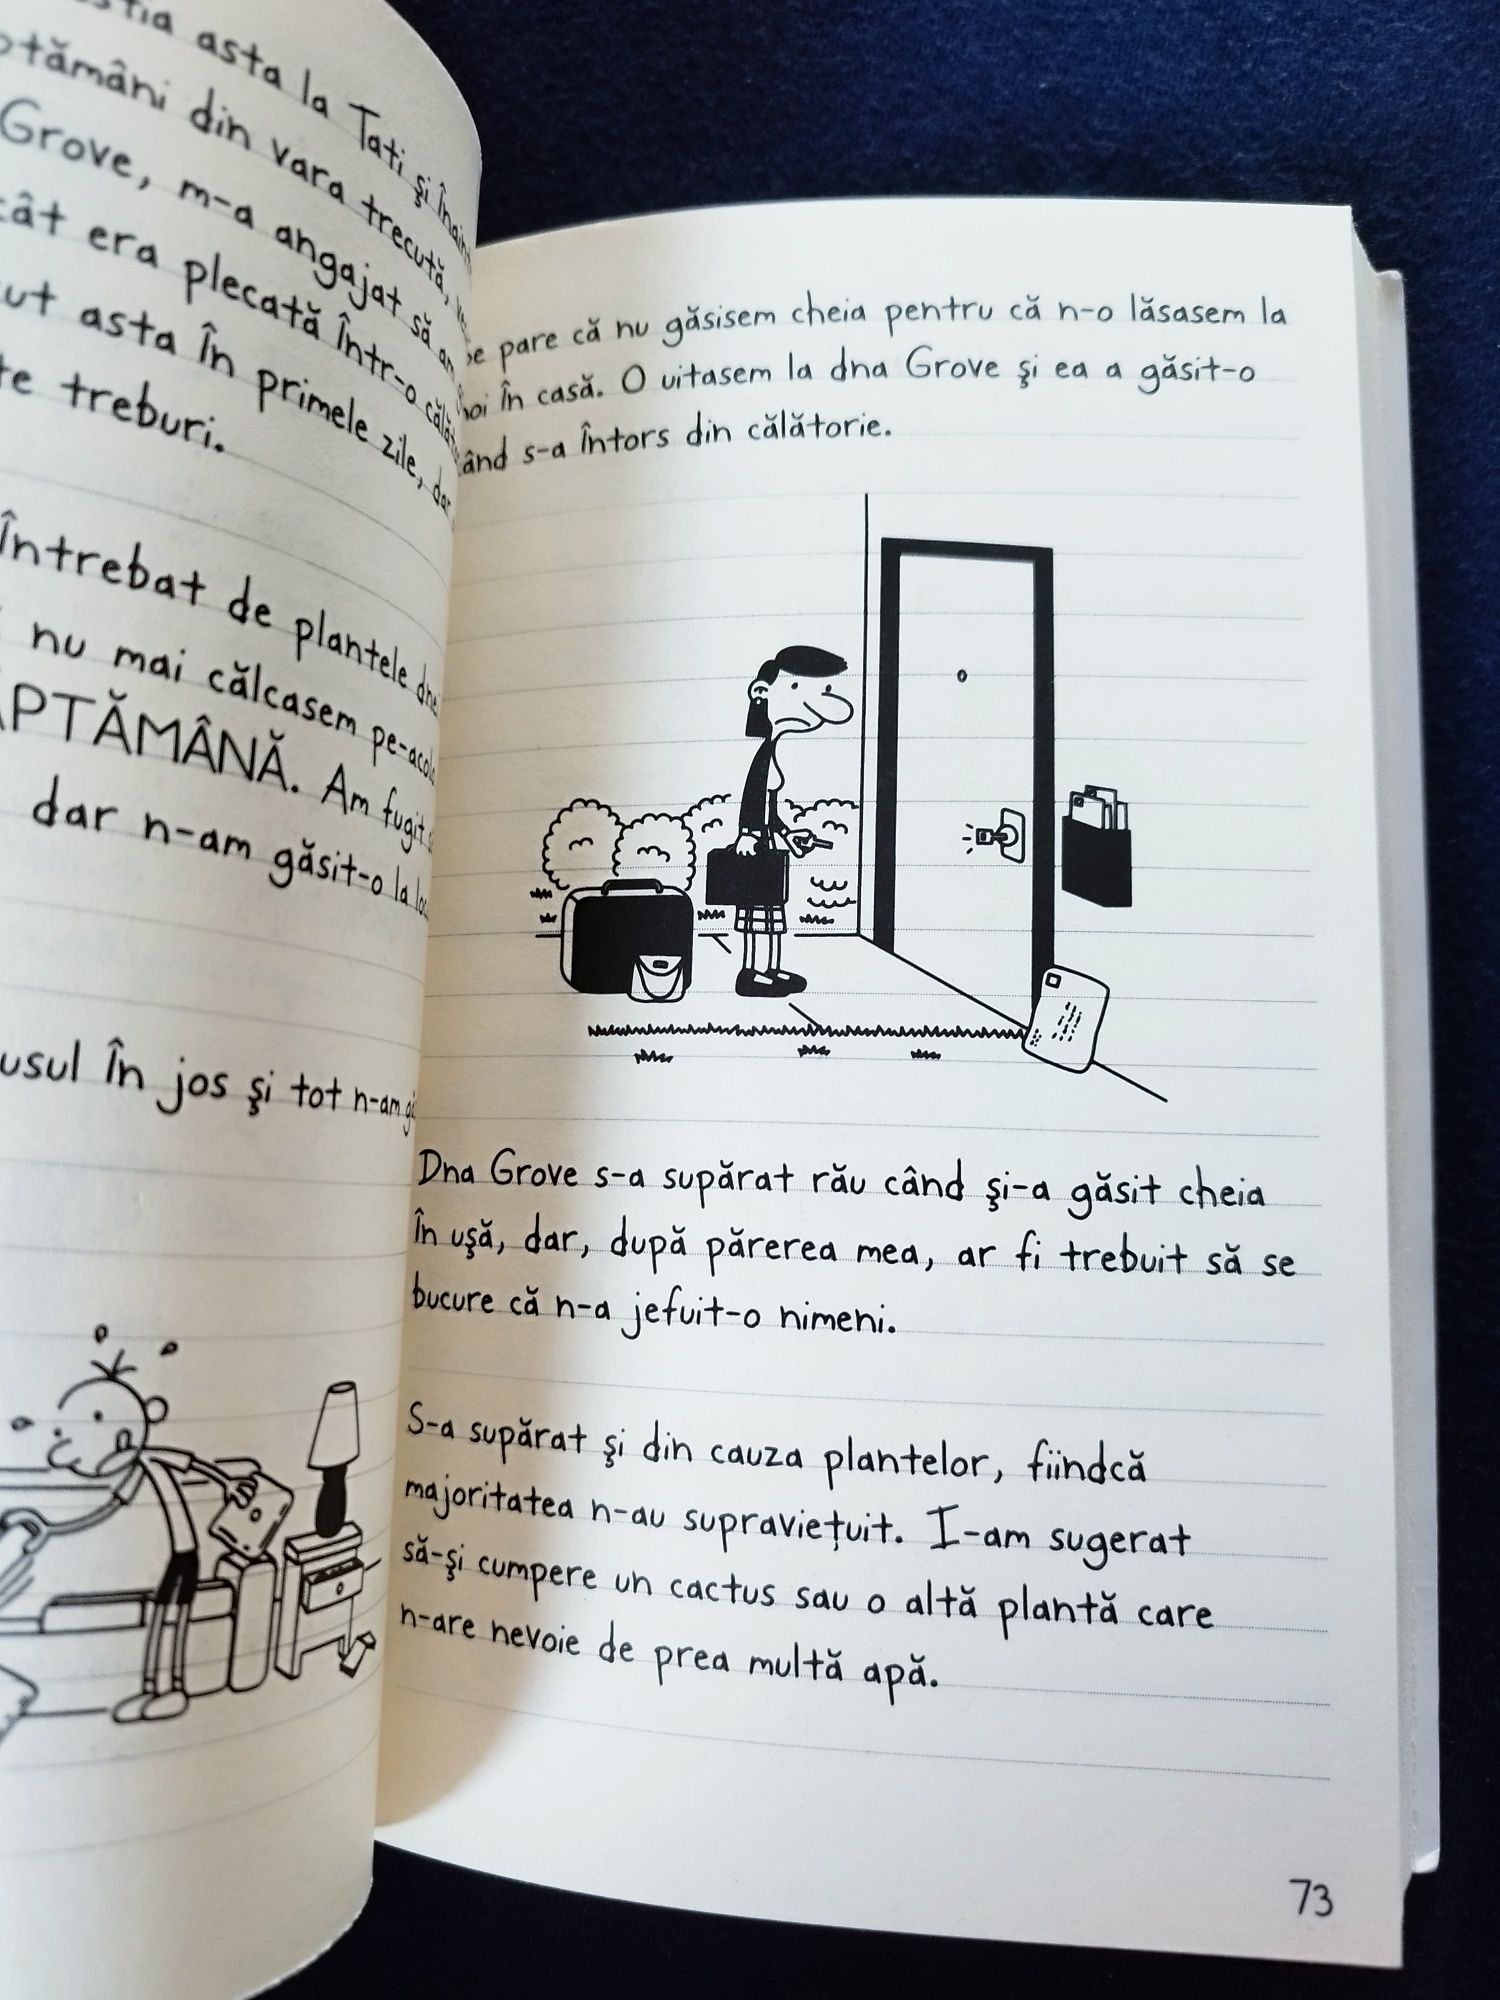 asta la Tati și
din vara trecută,
Grove, m-a angajat să
era plecată într-o
asta în primele zile, dar
treburi.
Întrebat de plantele
nu mai călcasem pe-acolo
Am fugit
dar n-am găsit-o la
în jos și tot n-am
pare că nu găsisem cheia pentru că n-o lăsasem la
în casă. O uitasem la dna Grove şi ea a găsit-o
s-a întors din călătorie.
Dna Grove s-a supărat rău când şi-a găsit cheia
în uşă, dar, după părerea mea, ar fi trebuit să se
bucure că n-a jefuit-o nimeni.
S-a supărat şi din cauza plantelor, fiindcă
majoritatea n-au supravieţuit. I-am sugerat
să-şi cumpere un cactus sau o altă plantă care
n-are nevoie de prea multă apă.
73